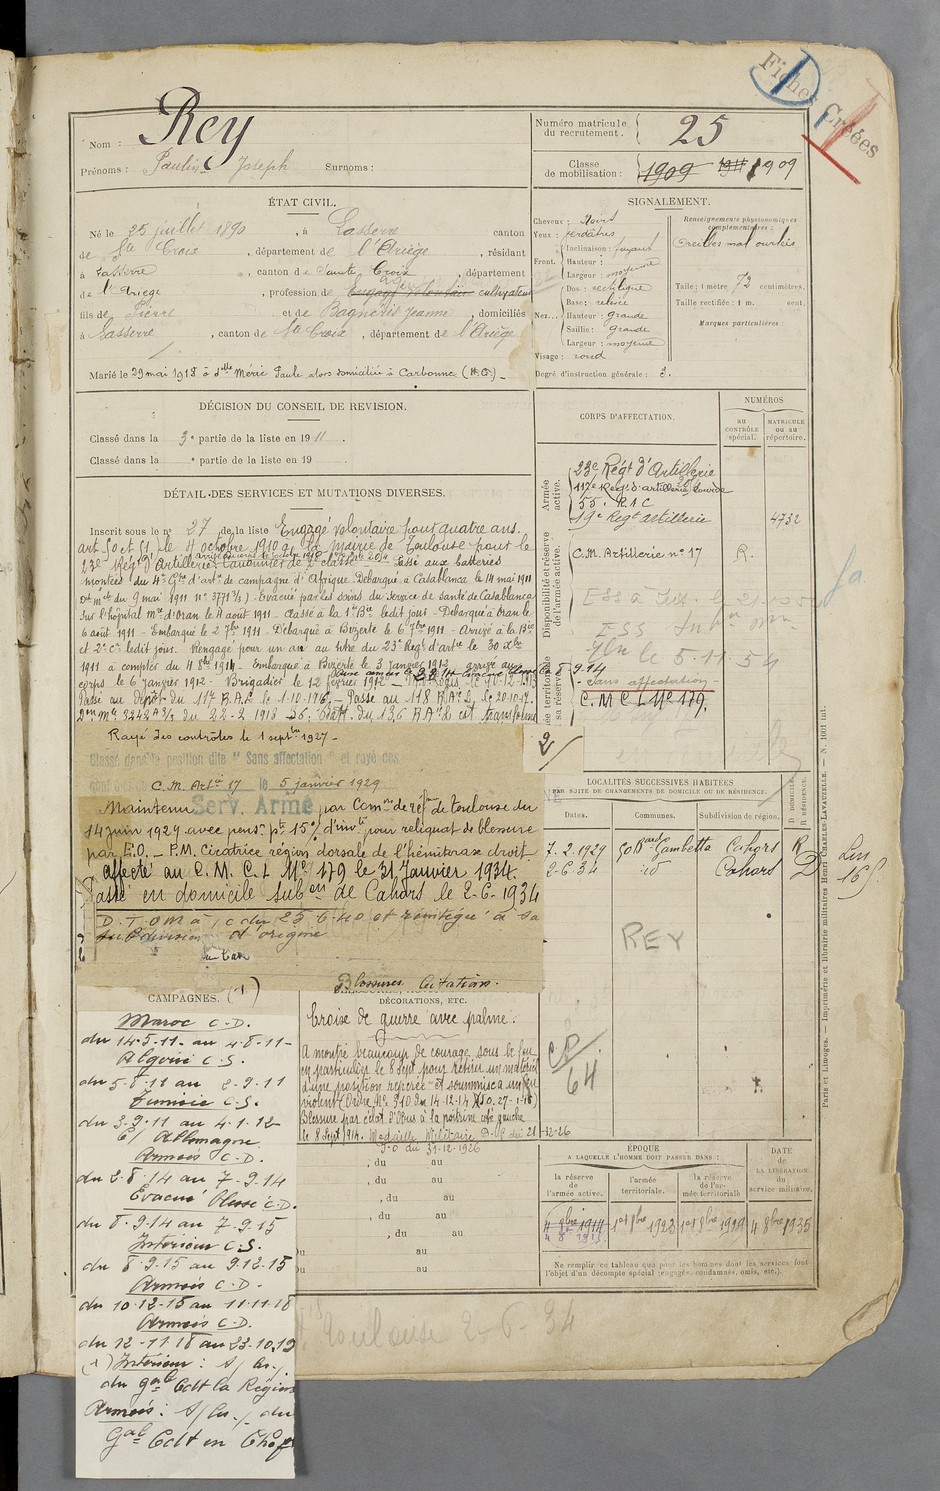 Fiches Créées
Nom : Rey
Prénoms : Paulin Joseph Surnoms :
Numéro matricule du recrutement. 25
Classe de mobilisation : 1909 1911 1909
ÉTAT CIVIL.
Né le 25 juillet 1890, à Lasserre canton
de Ste Croix, département de l'Ariège, résidant
à Lasserre, canton de Sainte Croix, département
de l'Ariège, profession de Engagé Volontaire cultivateur
fils de Pierre et de Bagnéris Jeanne, domiciliés
à Lasserre, canton de Ste Croix, département de l'Ariège
Marié le 29 mai 1918 à dlle Méric Paule alors domiciliée à Carbonne (H.G.)
SIGNALEMENT.
Cheveux : Noirs
Yeux : verdâtres
Front. Inclinaison : fuyant
Hauteur :
Largeur : moyenne
Nez... Dos : rectiligne
Base : relevée
Hauteur : grande
Saillie : grande
Largeur : moyenne
Visage : rond
Degré d'instruction générale : 3.
Renseignements physionomiques complémentaires :
Oreilles mal ourlées
Taille : 1 mètre 72 centimètres.
Taille rectifiée : 1 m. cent.
Marques particulières :
DÉCISION DU CONSEIL DE REVISION.
Classé dans la 3e partie de la liste en 1911.
Classé dans la e partie de la liste en 19
DÉTAIL DES SERVICES ET MUTATIONS DIVERSES.
Inscrit sous le no 27 de la liste Engagé Volontaire pour quatre ans.
art. 50 et 51 le 4 octobre 1910 à la mairie de Toulouse pour le
23e Régt d'Artillerie Canonnier de 2e classe Passé aux batteries
montées du 4e Gpe d'arte de campagne d'Afrique. Débarqué à Casablanca le 14 mai 1911
du 9 mai 1911 no 3771 3/5) - Evacué par les soins du Service de santé de Casablanca
sur l'hôpital mre d'Oran le 4 août 1911 - Passé à la 1re Bie ledit jour - Débarqué à Oran le
6 août 1911 - Embarqué le 2 7bre 1911 - Débarqué à Bizerte le 6 7bre 1911 - Arrivé à la Bie
et 2e Cc ledit jour. Rengagé pour un an au titre du 23e Régt d'arte le 30 Xbre
1911 à compter du 4 8bre 1914 - Embarqué à Bizerte le 3 janvier 1912 arrivé au
corps le 6 janvier 1912 - Brigadier le 12 février 1912
Passé au dépôt du 117e R.A.L le 1-10-1916 - Passé au 118 R.A.L le 20-10-17.
Rayé des contrôles le 1 septbre 1927 -
Classé dans la position dite " Sans affectation " et rayé des
C. M. Artie 17 le 5 janvier 1929
Maintenu Serv. Armé par Comon de réfme de Toulouse du
14 juin 1929 avec pension pte 15% d'invté pour reliquat de blessure
par E.O. - P.M. Cicatrice région dorsale de l'hémithorax droit.
affecté au C. M. C. L No 179 le 31 Janvier 1934.
Passé en domicile subon de Cahors le 2-6-1934
D. T. O M A, c du 25 6 40 et réintégré à sa
subdivision d'origine
CORPS D'AFFECTATION.
NUMÉROS
AU CONTRÔLE spécial.
MATRICULE ou au répertoire.
Armée active.
23e Régt d'Artillerie
117e Régt d'artillerie lourde
55e R.A.C
19e Régt artillerie 4732
Disponibilité et réserve de l'armée active.
C.M. Artillerie no 17 R.
le 5.11.54
- Sans affectation -
C. M. C L No 179.
2/
LOCALITÉS SUCCESSIVES HABITÉES
PAR SUITE DE CHANGEMENTS DE DOMICILE OU DE RÉSIDENCE.
Dates. Communes. Subdivision de région. D DOMICILE R RÉSIDENCE.
7-2-1929 50 Bard Gambetta Cahors R
2-6-34 id Cahors D
REY
64
CAMPAGNES. (1)
Maroc C.D.
du 14-5-11 au 4-8-11-
Algérie C.S.
du 5-8-11 au 2-9-11
Tunisie C.S.
du 3-9-11 au 4-1-12
C/ Allemagne
Armées C.D.
du 2-8-14 au 7-9-14
Evacué Blessé C.D.
du 8-9-14 au 7-9-15
Intérieur C.S.
du 8-9-15 au 9-12-15
Armées C.D-
du 10-12-15 au 11-11-18
Armées C.D.
du 12-11-18 au 23-10-19
(1) Intérieur : S/ Cs./
du Gal Cdt la Région
Armées : S/ Cs./ du
Gal Cdt en Chef
Blessures. Citations.
DÉCORATIONS, ETC.
Croix de guerre avec palme.
A montré beaucoup de courage sous le feu
en particulier le 8 Sept pour retirer un matériel
d'une position repérée et soumise à un feu
violent (Ordre No 310 du 14-12-14)(J.O. 27-1-15)
Blessure par éclat d'Obus à la poitrine côté gauche
le 8 Sept 1914. Médaille Militaire D. P. du 21-12-26
J.O du 31-12-1926
, du au
, du au
, du au
, du au
du au
du au
ÉPOQUE
A LAQUELLE L'HOMME DOIT PASSER DANS :
la réserve de l'armée active.
l'armée territoriale.
la réserve de l'armée territoriale
DATE de LA LIBÉRATION du service militaire.
4 8bre 1914 1er 8bre 1923 1er 8bre 1929 4 8bre 1935
Ne remplir ce tableau que pour les hommes dont les services font
l'objet d'un décompte spécial (engagés, condamnés, omis, etc.).
Paris et Limoges. — Imprimerie et librairie militaires Henri CHARLES-LAVAUZELLE. — N. 1001 int.
Toulouse 2-6-34